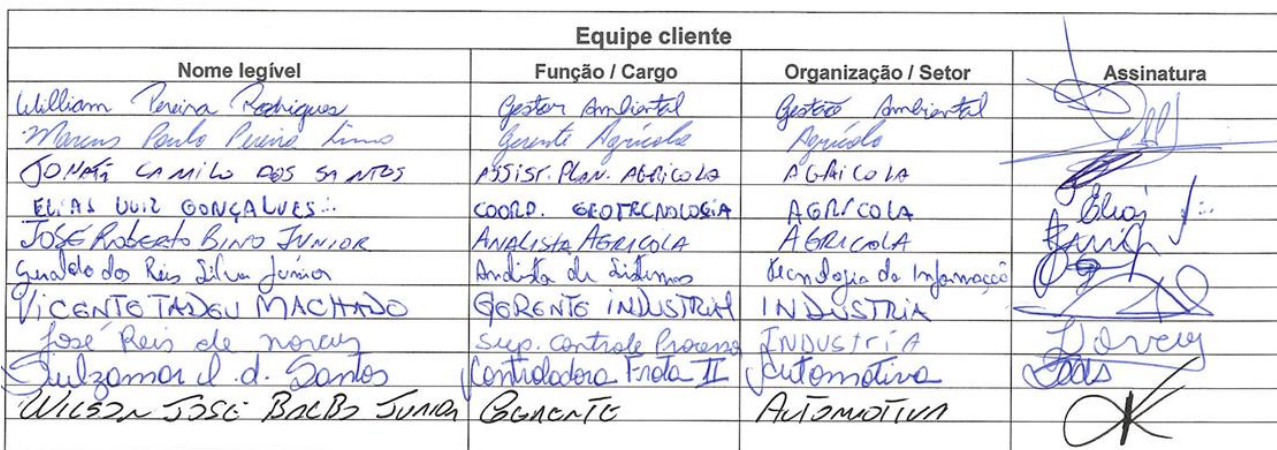 Equipe cliente
Nome legível Função / Cargo Organização / Setor Assinatura
William Pereira Rodrigues Gestor Ambiental Gestão Ambiental
Marcus Paulo Pereira Lima Gerente Agrícola Agrícola
JONATÃ CAMILO DOS SANTOS ASSIST. PLAN. AGRICOLA AGRICOLA
ELIAS LUIZ GONÇALVES COORD. GEOTECNOLOGIA AGRICOLA Elias
JOSÉ ROBERTO BINO JUNIOR ANALISTA AGRICOLA AGRICOLA
Geraldo dos Reis Silva Júnior Analista de Sistemas Tecnologia da Informação
VICENTE TADEU MACHADO GERENTE INDUSTRIAL INDUSTRIA
José Reis de Sup. Controle Processo INDUSTRIA
d. Santos Controladora Frota II Automotiva
WILSON JOSÉ JUNIOR GERENTE AUTOMOTIVA